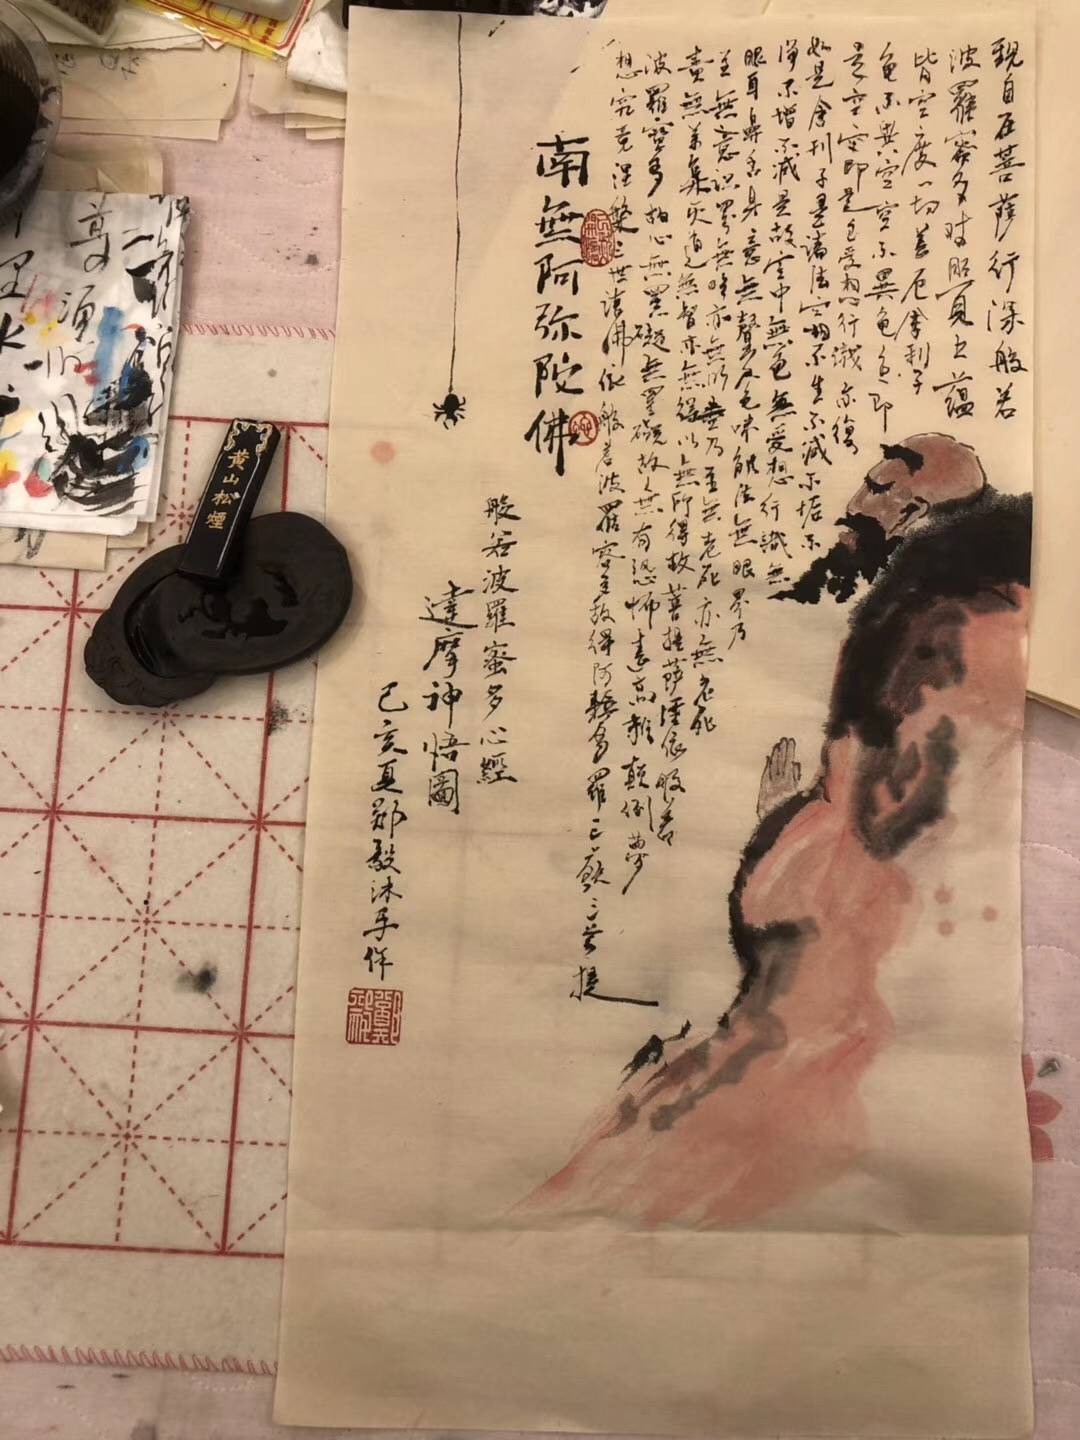 观自在菩薩行深般若
波羅蜜多时照見五蘊
皆空度一切苦厄舍利子
色不異空空不異色色即
是空空即是色受想行識亦復
如是舍利子是諸法空相不生不滅不垢不
净不增不减是故空中無色無受想行識無
眼耳鼻舌身意無聲香色味触法無眼界乃
至無意识界無無明亦無明盡乃至無老死亦無老死
盡無苦集灭道無智亦無得以無所得故菩提薩埵依般若
波羅蜜多故心無罣礙無罣礙故無有恐怖遠离顛倒夢
想究竟涅槃三世诸佛依般若波羅蜜多故得阿耨多羅三藐三菩提
南無阿弥陀佛
般若波羅蜜多心經
達摩神悟圖
己亥夏鄭毅沐手作
黄山松煙